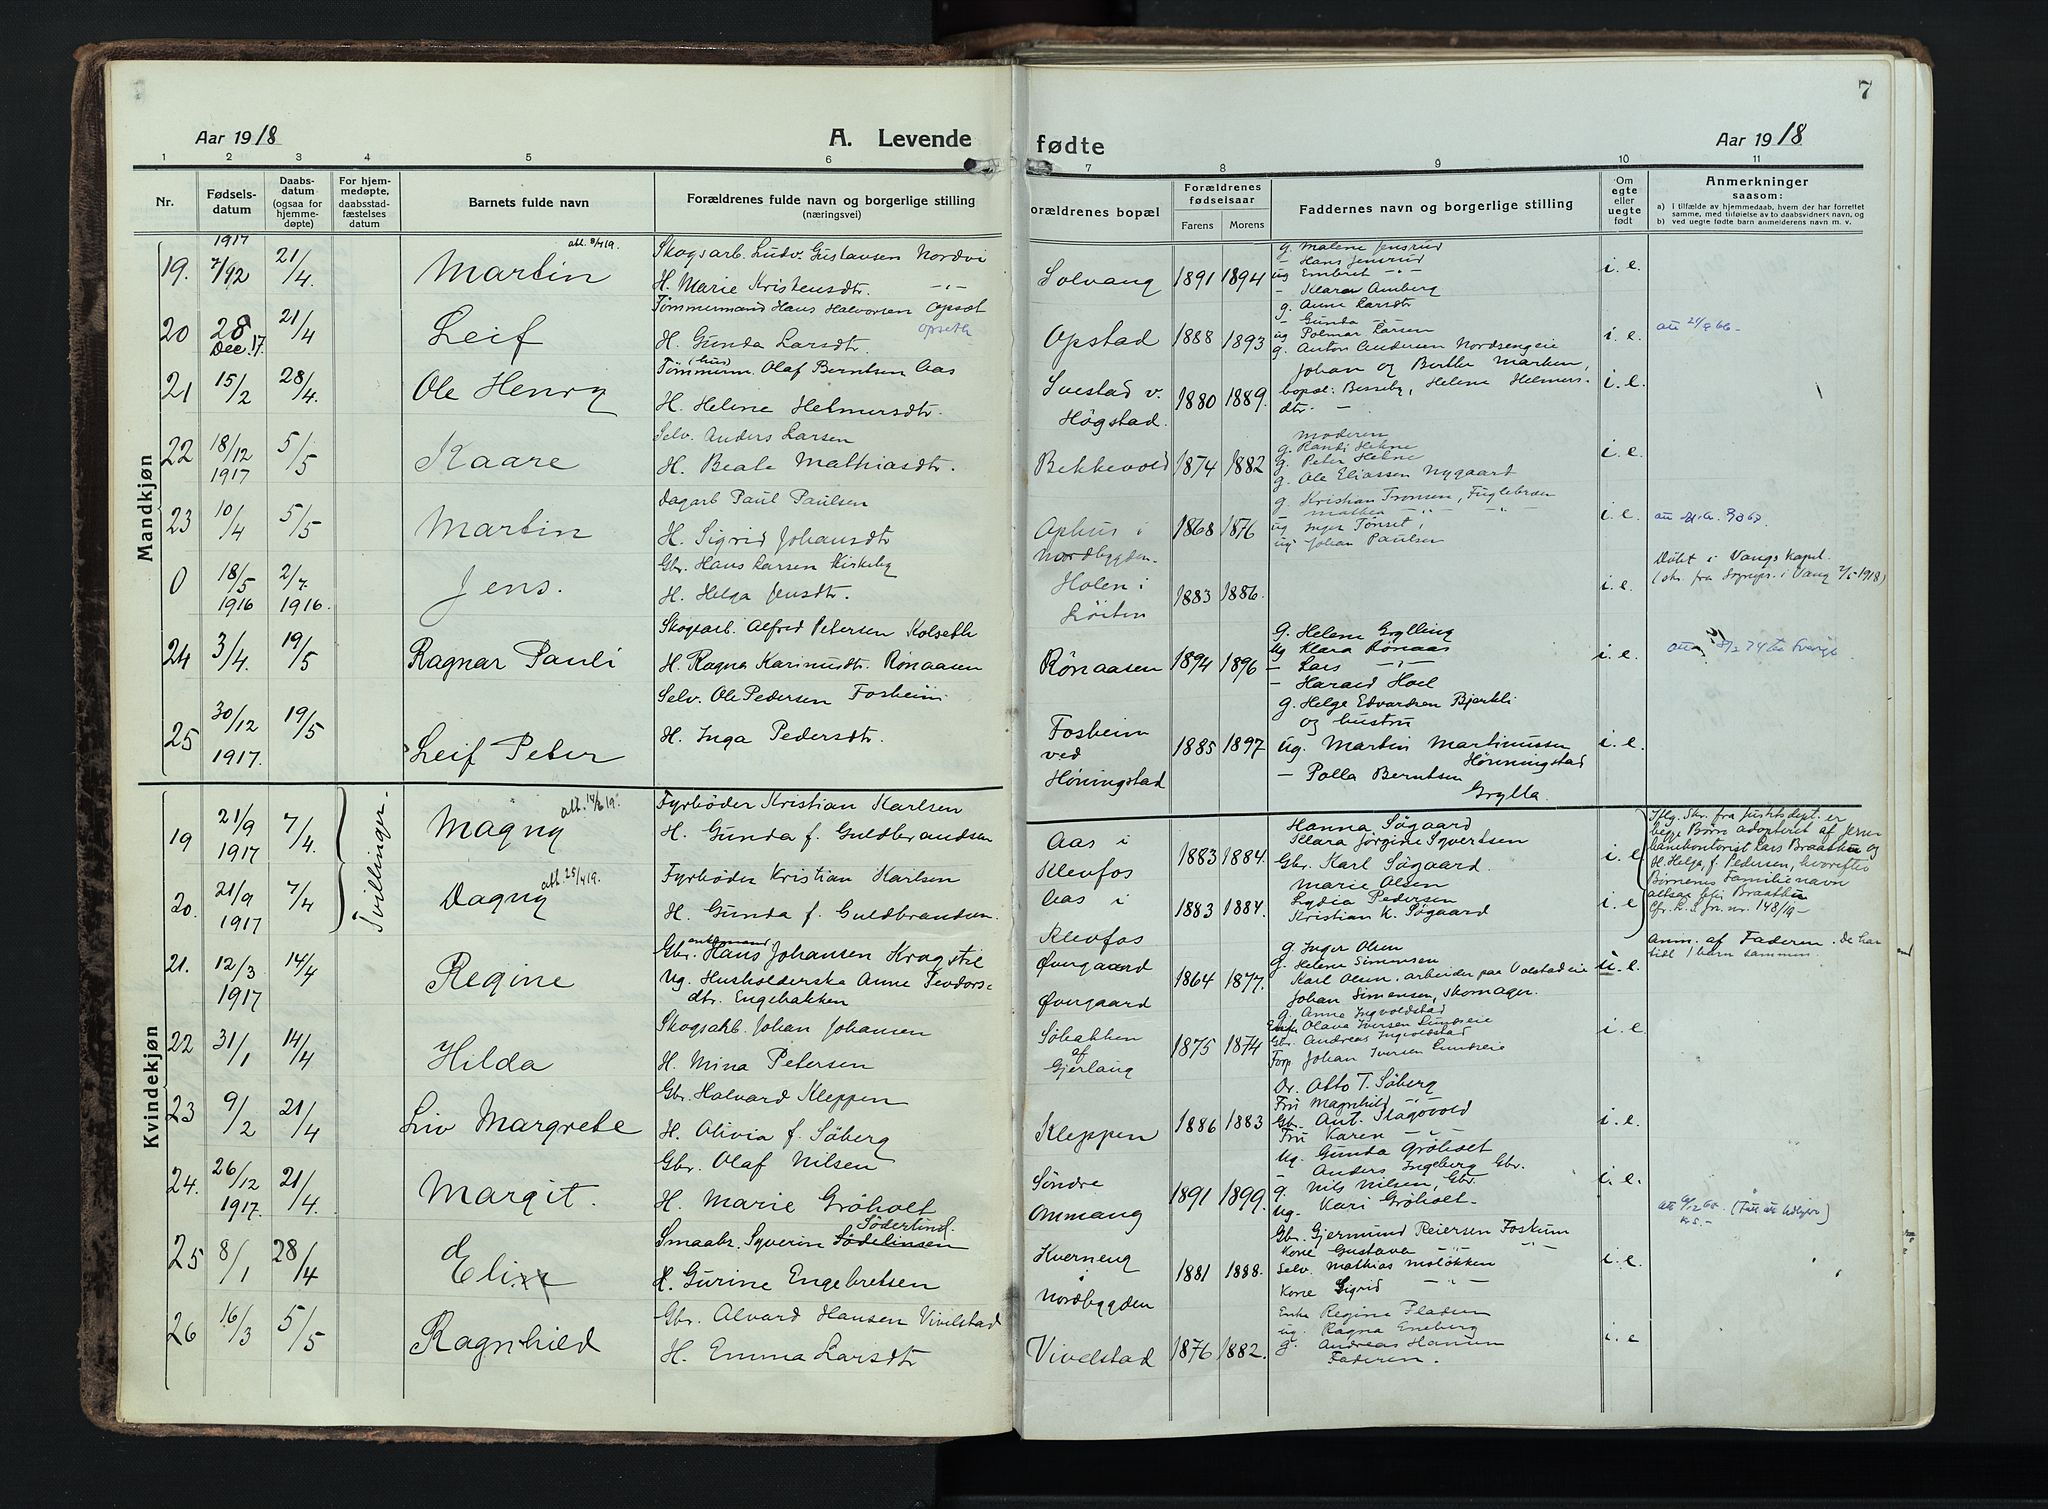 7
Aar 1918
A. Levende
fødte
Aar 1918
1 2 3 4 5 6 7 8 9 10 11
Nr.
Fødsels-
datum
Daabs-
datum
(ogsaa for
hjemme-
døpte)
For hjem-
medøpte,
daabsstad-
fæstelses
datum
Barnets fulde navn
Forældrenes fulde navn og borgerlige stilling
(næringsvei)
orældrenes bopæl
Forældrenes
fødselsaar
Farens Morens
Faddernes navn og borgerlige stilling
Om
egte
eller
uegte
født
Anmerkninger
saasom:
a) I tilfælde av hjemmedaab, hvem der har forrettet
samme, med tilføielse av to daabsvidners navn, og
b) ved uegte fødte barn anmelderens navn m. v.
Mandkjøn
19. 1917 7/12 21/4 Martin
Skogsarb. Ludv. Gustavsen Nordvi
H. Marie Kristensdtr. -"-
Solvang 1891 1894
g. Malene Jensrud
- Hans Jensrud
ug Embret -"-
- Klara Amberg
i. e.
20 28 Dec. 17. 21/4 Leif
Tømmermand Hans Halvorsen Opsat
Opseth
H. Gunda Larsdtr.
Opstad 1888 1893
g. Anne Larsdtr
- Gunda -"-
ug Polmar Larsen
g. Anton Andersen Nordsengeie
i. e.
21 15/2 28/4. Ole Henry
Tømmerm. Olaf Berntsen Aas
H. Helene Helmersdtr.
Svestad v.
Høgstad.
1880 1889.
Johan og Berthe Marken,
bopæl: Berseby, Helene Helmers-
dtr. -
i. e.
22 18/12 1917 5/5 Kaare
Selv. Anders Larsen
H. Beate Mathiasdtr.
Bekkevold 1874 1882
Moderen
g. Randi Helne
g. Peter Helne
g. Ole Eliassen Nygaard
i. e.
23 10/4 5/5 Martin
Dagarb Paul Paulsen
H. Sigrid Johansdtr
Ophus i
Nordbygden.
1868 1876
g. Kristian Tronsen, Fuglebræn
Mathea -"- -"-
ug Inger Tønset,
ug. Johan Paulsen
i. e.
0 18/5 1916 2/7 1916. Jens.
Gbr. Hans Larsen Kirkeby
H. Helga Jensdtr.
Holen i
Løiten
1883 1886.
i. e.
Døbt i Vangs Kapel.
(skr. fra Sognepr. i Vang 2/5 1918)
24 3/4. 19/5 Ragnar Pauli
Skogsarb. Alfred Petersen Kolseth
H. Ragna Karinusdtr. Rønaasen
Rønaasen 1894 1896
G. Helene Grylling
Ug Klara Rønaas
- Lars -"-
- Harald Hoel
i. e.
25 30/12 1917. 19/5 Leif Peter
Selv. Ole Pedersen Fosheim
H. Inga Pedersdtr.
Fosheim
ved
Høningstad
1885 1897
g. Helge Edvardsen Bjerkli
og hustru
ug. Martin Martinussen
Hønningstad
- Polla Berntsen
Grylla.
i. e.
Kvindekjøn
Tvillinger.
19 21/9 1917 7/4. Magny att. 14/6 19.
Fyrbøder Kristian Karlsen
H. Gunda f. Guldbrandsen
Aas i
Klevfos
1883 1884.
Hanna Søgaard
Klara Jørgine Syvertsen
Gbr. Karl Søgaard.
i. e
Iflg. Skr. fra Justitsdept. er
begge Børn adopteret af Jern-
banekontorist Lars Braathen og
H. Helga, f. Pedersen, hvorefter
Børnenes Familienavn
altsaa blir Braathen
Cfr. L. S. jrn. nr. 148/19 -
20. 21/9 1917 7/4 Dagny att. 25/4 19.
Fyrbøder Kristian Karlsen
H. Gunda f. Guldbrandsen.
Aas i
Klevfos
1883 1884.
Marie Olsen
Lydia Pedersen
Kristian K. Søgaard
i. e
21. 12/3 1917 14/4 Regine
Gbr. enkemand Hans Johansen Kragstil
Ug. Husholderske Anne Teodors-
dtr. Engebakken
Øvergaard
Øvergaard
1864 1877.
g. Inger Olsen
g. Helene Simensen
Karl Olsen, arbeider paa Volstadeie
Johan Simensen, Skomager.
u. e.
Anm. af Faderen. De har
tidl 1 barn sammen.
22 31/1 14/4 Hilda
Skogsarb. Johan Johansen
H. Mina Petersen
Søbakken
af
Gjerlaug
1875 1874
g. Anna Ingvoldstad
Enke Olava Iversen Lundseie
Gbr. Andreas Ingvoldstad
Forp Johan Iversen Lundseie
i. e.
23 9/2 21/4 Liv Margrete
Gbr. Halvard Kleppen
H. Olivia f. Søberg
Kleppen 1886 1883
Dr. Otto T. Søberg
Fru Magnhild -"-
Gbr. Ant. Slagsvold
Fru Karen -"-
i. e.
24. 26/12 1917. 21/4. Margit.
Gbr. Olaf Nilsen
H. Marie Grøholt
Søndre
Ommang
1891 1899.
Ug. Gunda Grøholt
Anders Ingeberg Gbr.
g. Nils Nilsen, Gbr.
Ug. Kari Grøholt -
i. e.
25 8/1 28/4 Eli
Smaabr. Syverin Södelinsen Söderlind.
H. Gurine Engebretsen
Kverneng
i
Nordbygden
1881 1888.
Gbr. Gjermund Reiersen Foskum
Kone Gustava -"- -"-
Selv. Mathias Moløkken
Kone Sigrid -"-
i. e.
26 16/3 5/5 Ragnhild
Gbr. Alvard Hansen Vivelstad
H. Emma Larsdtr
Vivelstad 1876 1882.
Enke Regine Pladsen
ug. Ragna Eneberg
g. Andreas Hansen
Faderen.
i. e